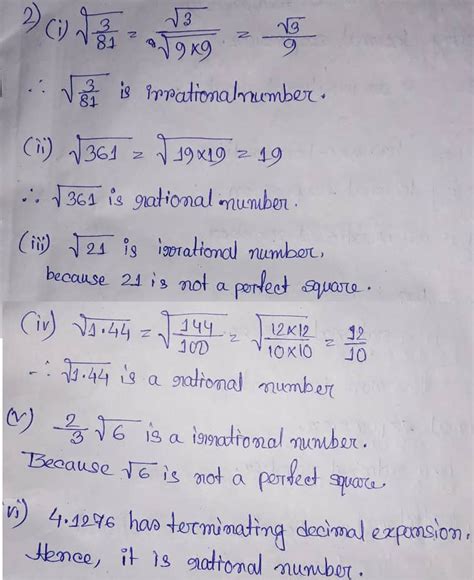 2) (i) √(3/81) = √3/√(9×9) = √3/9
∴ √(3/81) is irrational number.
(ii) √361 = √(19×19) = 19
∴ √361 is rational number.
(iii) √21 is irrational number,
because 21 is not a perfect square.
(iv) √1.44 = √(144/100) = √(12×12/10×10) = 12/10
∴ √1.44 is a rational number
(v) 2/3 √6 is a irrational number.
Because √6 is not a perfect square
vi) 4.1276 has terminating decimal expansion.
Hence, it is rational number.